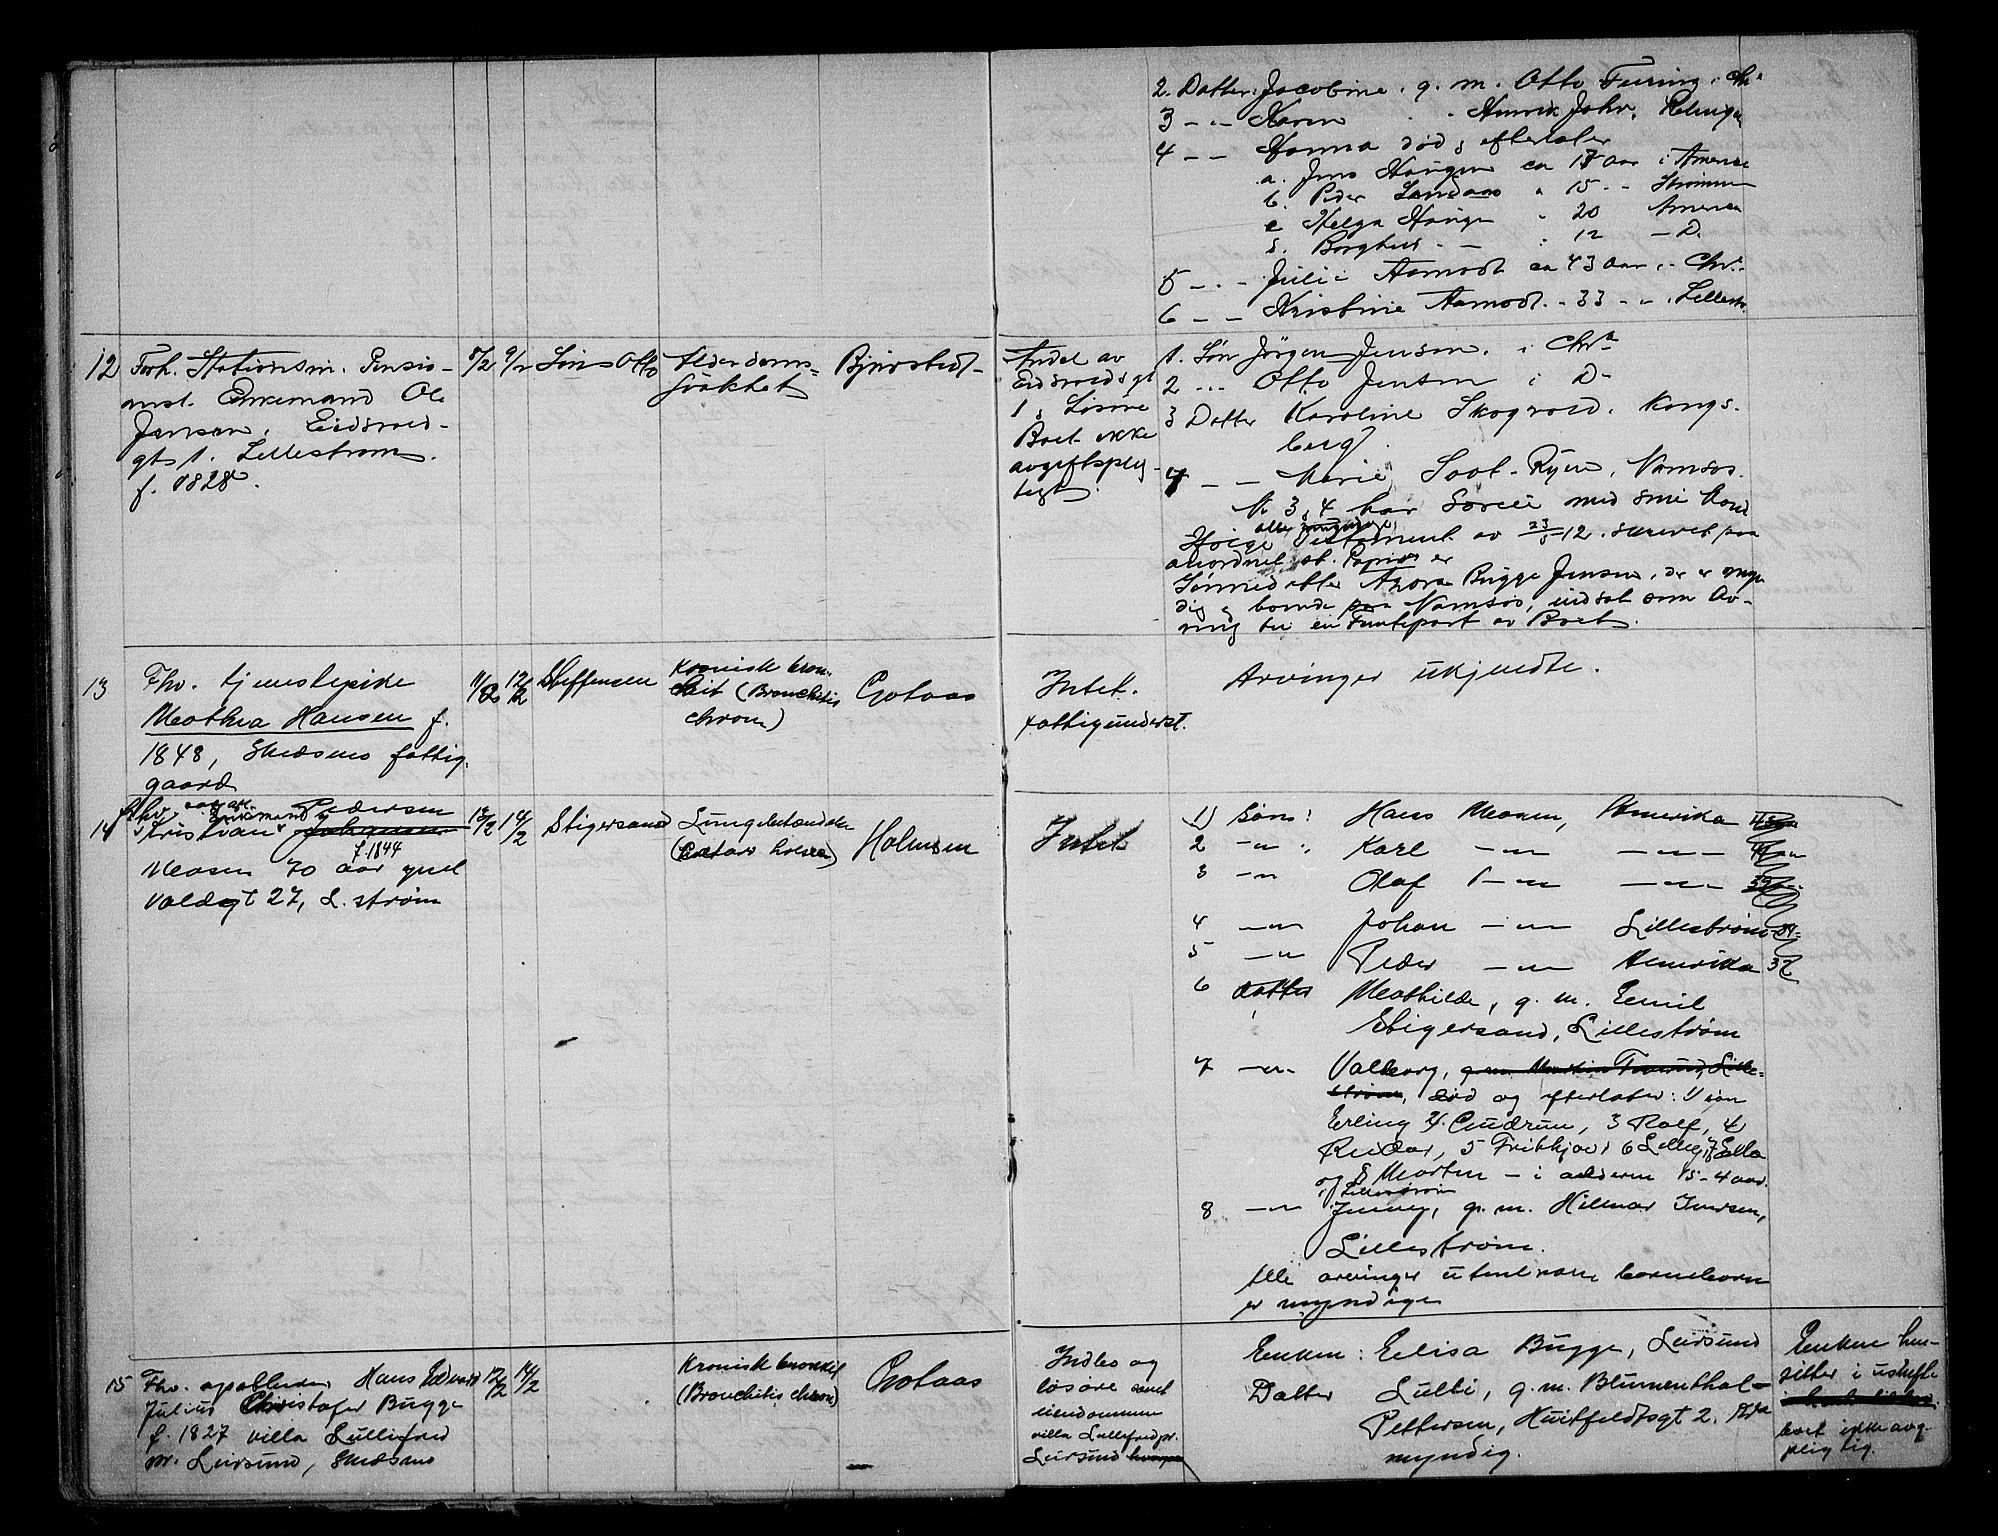 2. Datter Jacobine. g. m. Otto
3 - - Karen Henrik Johr.
4 - - Hanna død, efterlater
a. Jens Haugen ca 17 aar i America
b. Peder 15 - - Strømmen
c Helga Haugen 20 America
d. Borghild - - 12 - D.
5 - - Julie Aamodt ca 43 aar i Chr.
6 - - Kristine Aamodt - 33 - - Lillestr.
12 Forh. Stationsm. Pensio-
nist Enkemand Ole
Jensen, Eidsvold-
gt 1. Lillestrøm.
f. 1828.
8/2 9/2 Søn Otto
Alderdoms-
svakhet
Bjørstedt
Andel av
Eidsvoldsgt
1 & Løsøre
Boet ikke
avgiftsplig-
tigt.
1. Søn Jørgen Jensen. i Chr.a
2 ... Otto Jensen i D-
3 Datter Karoline Skogvold. Kongs-
berg.
4 - - Marie Soot-Ryen, Namsos.
Nr 3 & 4 har særeie med sine
alle myndige.
Ifølge Testament av 23/5 12. skrevet paa
anordnet st. Papir er
Sønnedatter Thora Bugge Jensen, der er myn-
dig & boende paa Namsos, indsat som Ar-
ving til en Femtepart av Boet.
13 Fhv. tjenestepike
Mathea Hansen f.
1848, Skedsmo fattig-
gaard
11/2 12/2 Steffensen
Kronisk bron-
kit (Bronchitis
chron)
Gotaas
Intet.
fattigunderst.
Arvinger ukjendte.
14 Fhv. enkemand Pedersen
Kristian Johansen
f. 1844
Moen 70 aar gml
Voldsgt 27, L. strøm
13/2 14/2 Stigersand
Lungebetændelse
Holmsen
Intet
1) Søn: Hans Moen, Amerika
2 -"- Karl -"- -"-
3 -"- Olaf -"- -"-
4 -"- Johan -"- Lillestrøm
5 -"- Peder -"- Amerika 32
6 datter Mathilde, g. m. Emil
Stigersand, Lillestrøm
7 -"- Valborg, g. m. Martin Lille-
strøm, død og efterlater: 1 søn
Erling 2. Gudrun, 3 Rolf, 4
Reidar, 5 Frithjof 6 Lilly, 7 Ella
og 8 Morten - i alderen 15-4 aar.
i Lillestrøm
8 -"- Jenny, g. m. Hilmar Iversen,
Lillestrøm.
Alle arvinger utentvare barnebarn
er myndige
15 Fhv. apotheker Hans Edvard
Julius Christofer Bugge
f. 1827 villa Lullifred
pr. Leirsund, Skedsmo
12/2 14/2
Kronisk bronkit
(Bronchitis chron)
Gotaas
Indbo og
løsøre samt
eiendommen
villa Lullefred pr.
Leirsund
Enken: Elisa Bugge, Leirsund
Datter Lulli, g. m. Blumenthal-
Pettersen, Huitfeldtsgt 2.
myndig.
Enken hen-
sitter i uskifte
boet ikke avg.
pligtig.